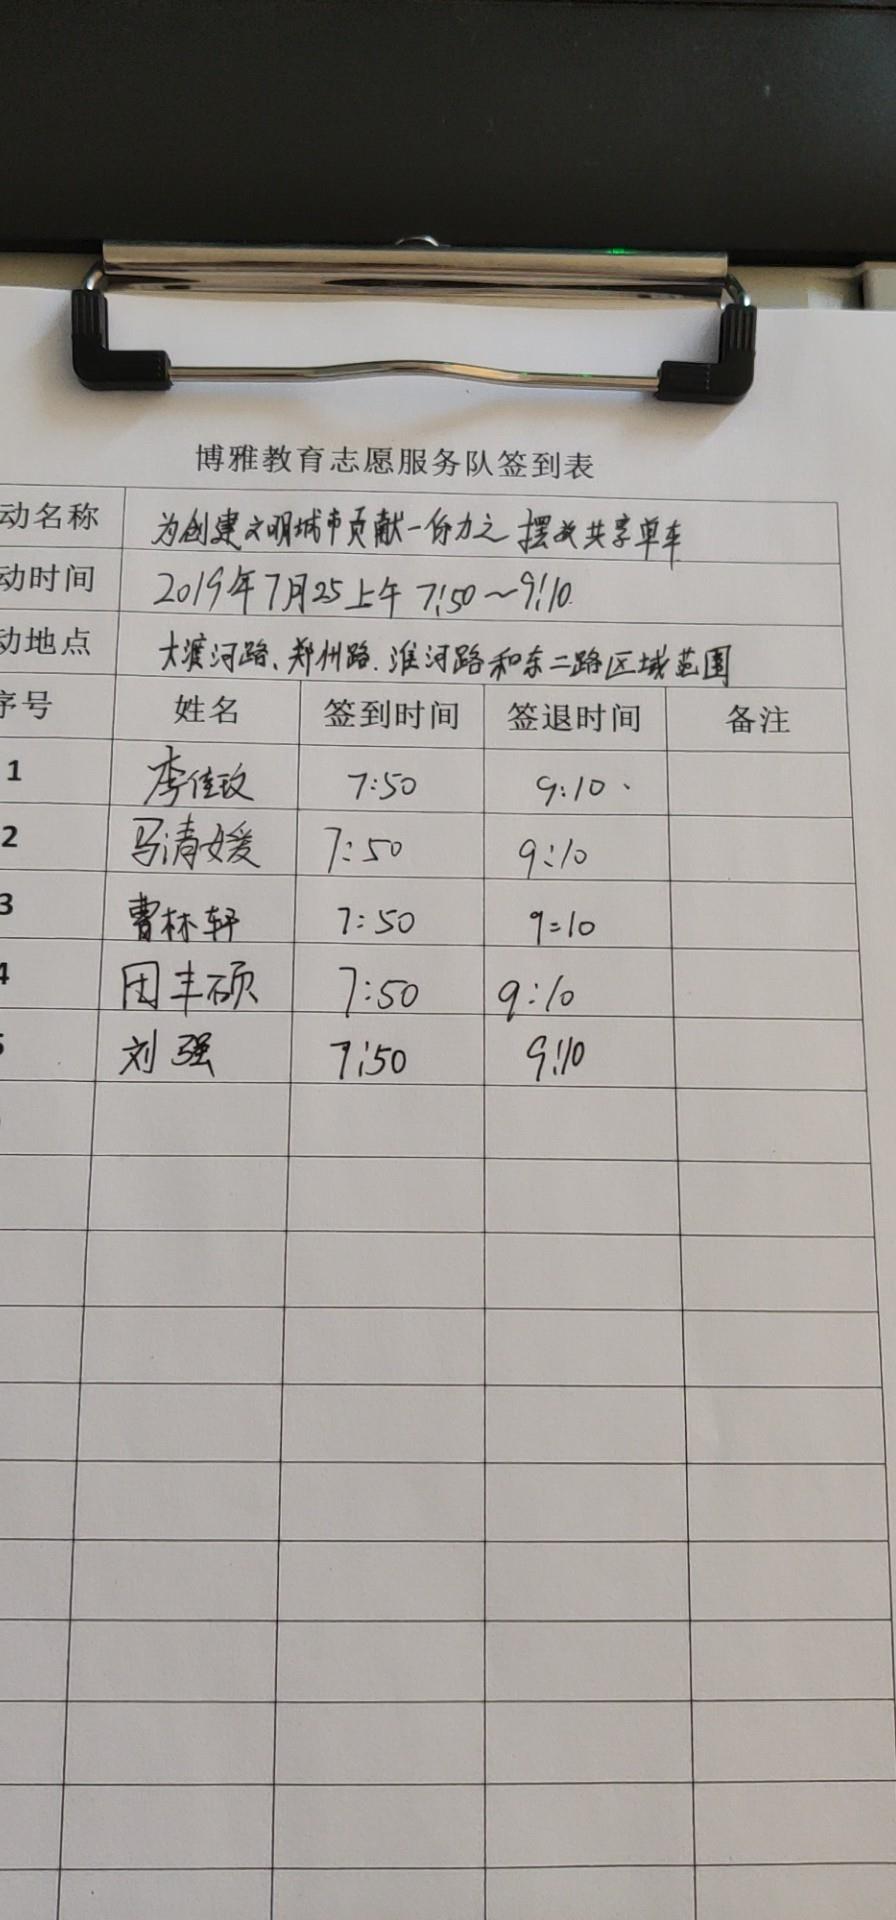 博雅教育志愿服务队签到表
动名称 为创建文明城市贡献一份力之 摆放共享单车
动时间 2019年7月25上午 7:50～9:10.
动地点 大渡河路、郑州路.淮河路和东二路区域范围
序号 姓名 签到时间 签退时间 备注
1 李佳玫 7:50 9:10
2 马清媛 7:50 9:10
3 曹林轩 7:50 9:10
4 田丰硕 7:50 9:10
5 刘强 7:50 9:10